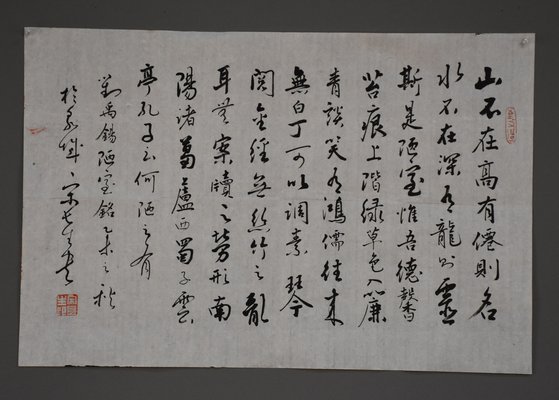 山不在高有僊則名
水不在深有龍則靈
斯是陋室惟吾德馨
苔痕上階綠草色入簾
青談笑有鴻儒往來
無白丁可以調素琴
閱金經無絲竹之亂
耳無案牘之勞形南
陽諸葛廬西蜀子雲
亭孔子云何陋之有
劉禹錫陋室銘乙未之秋
於